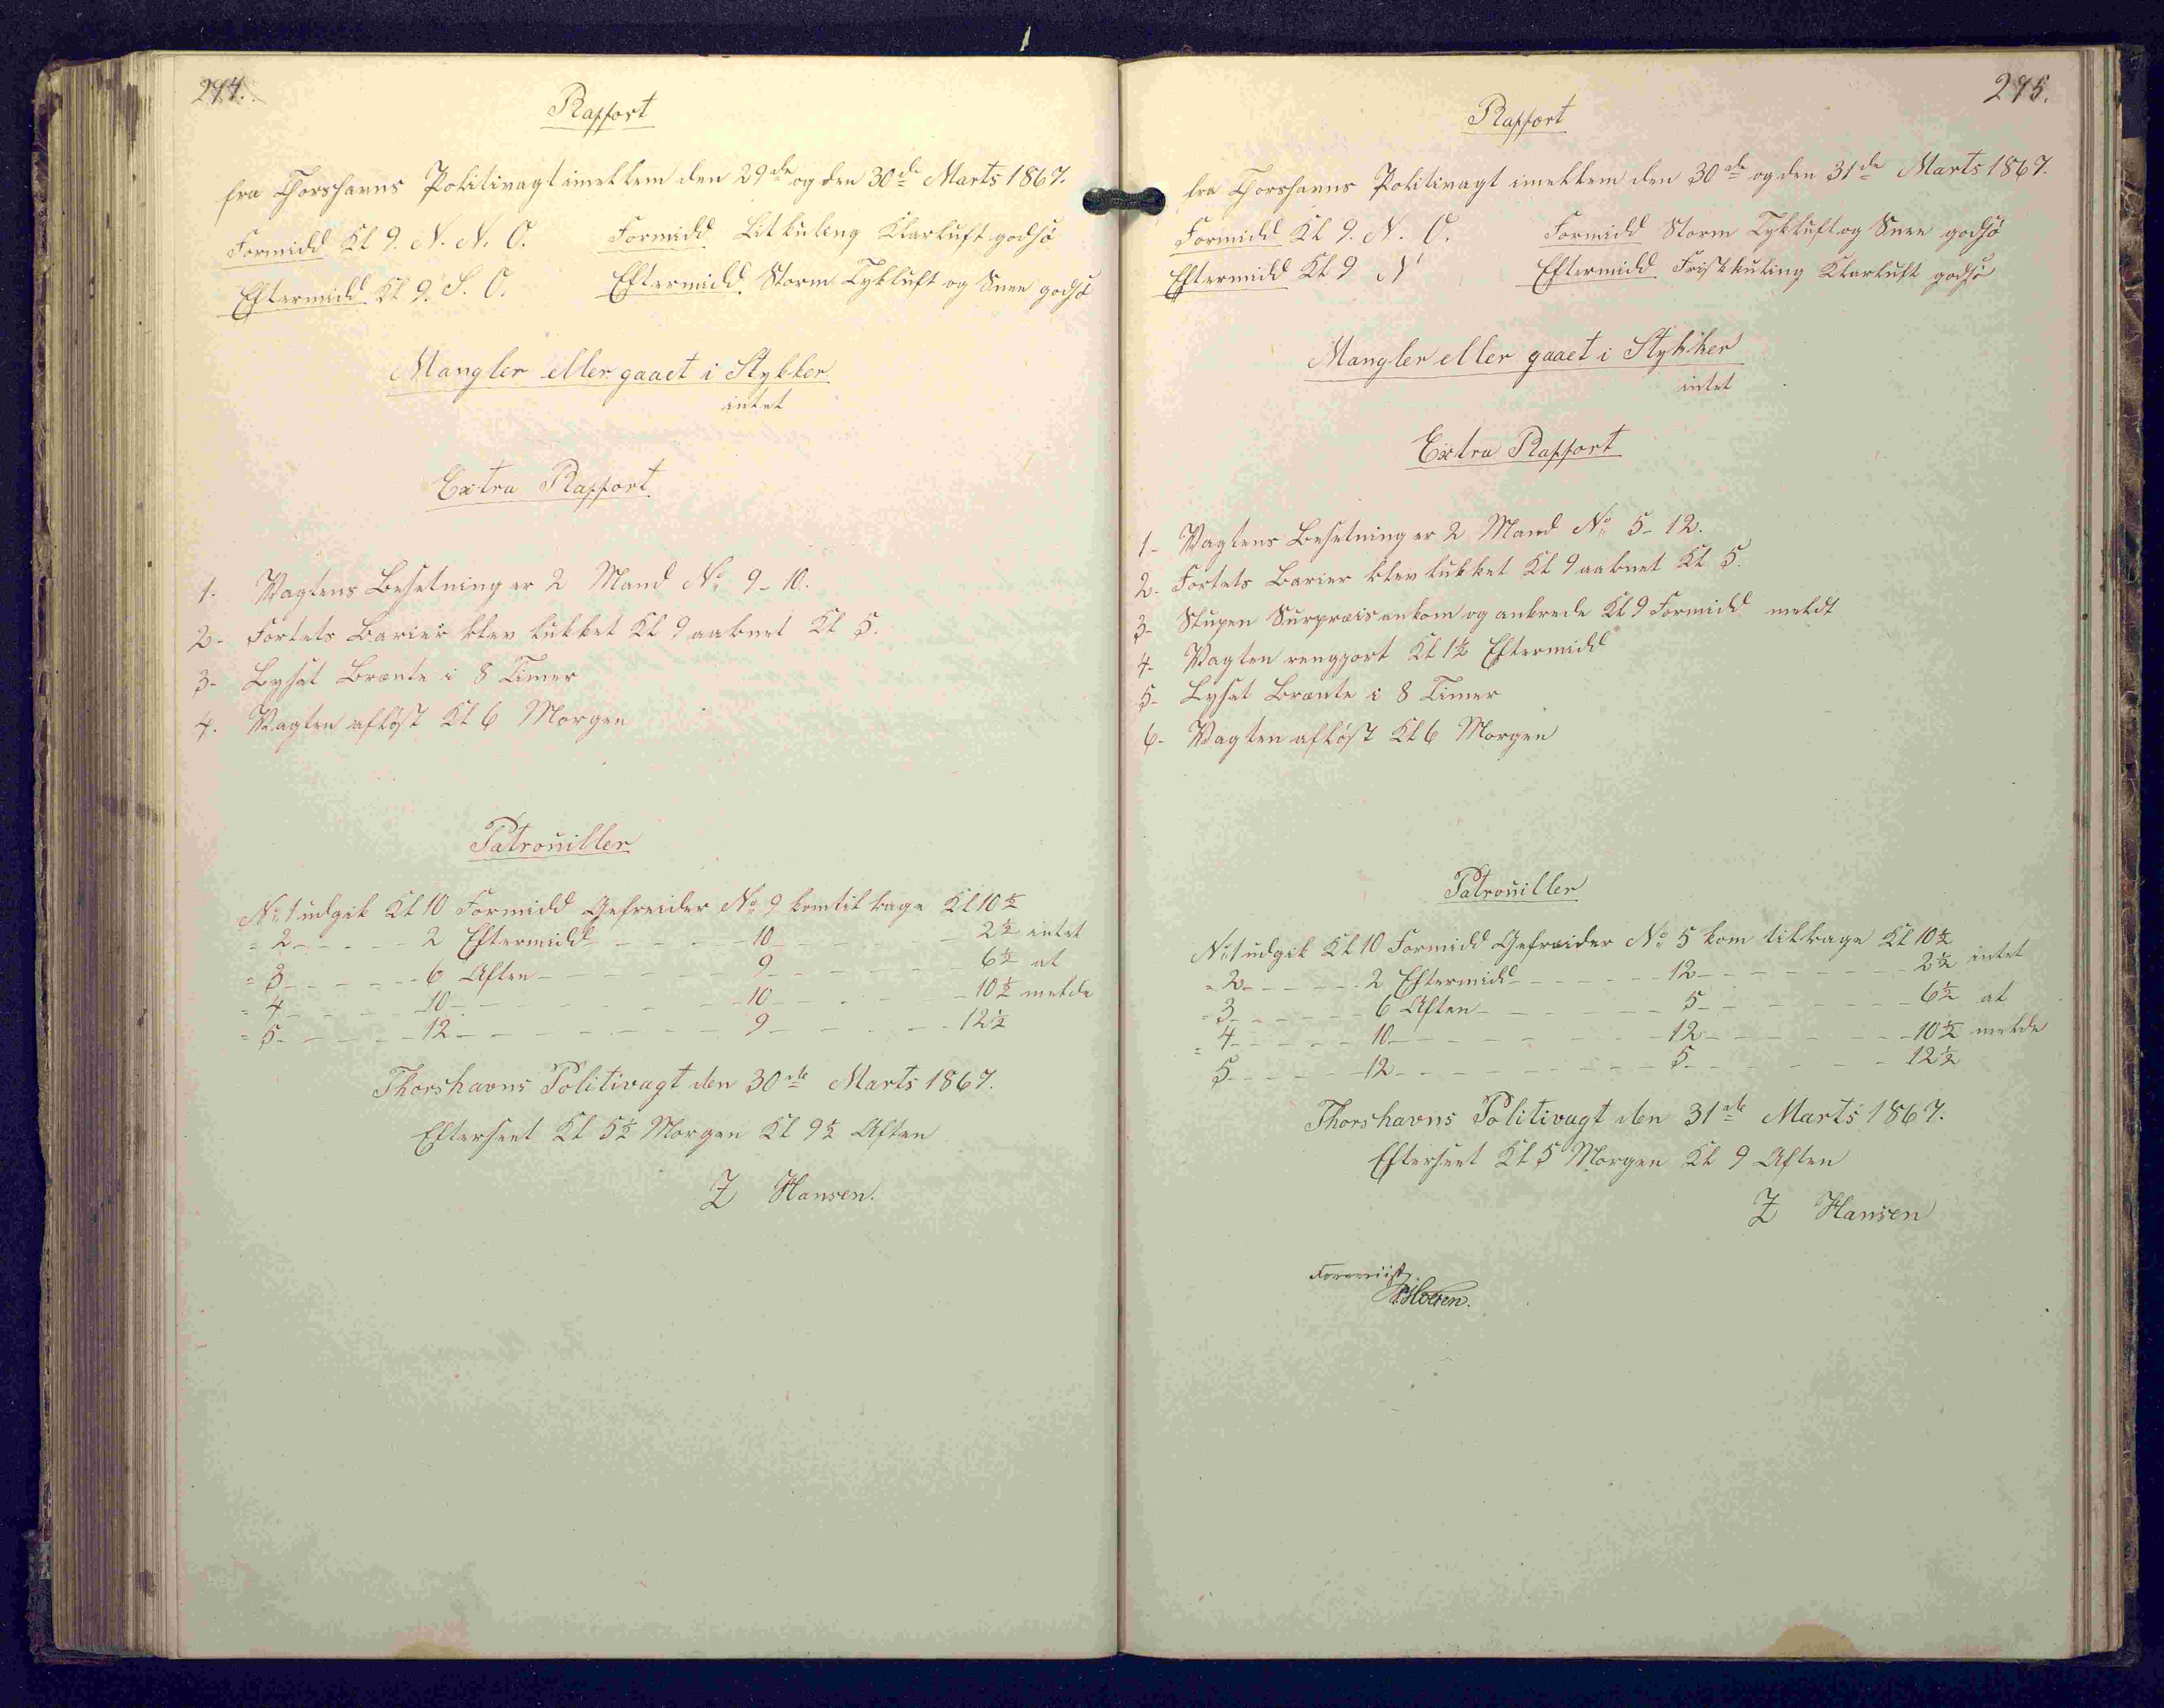 294.
Rapport
fra Thorshavns Politivagt imellem den 29de og den 30de Marts 1867.
Formidd Kl 9. N. N. O. Formidd Litkuling Klarluft godsø
Eftermidd Kl 9. S. O. Eftermidd. Storm Tykluft og Snee godsø
Mangler eller gaaet i Stykker
intet
Extra Rapport
1. Vagtens Besetning er 2 Mand No 9-10.
2- Fortets Barier blev lukket Kl 9 aabnet Kl 5.
3- Lyset Brænte i 8 Timer
4. Vagten afløst Kl 6 Morgen
Patrouiller
No 1 udgik Kl 10 Formidd Gefreider No 9 kom tilbage Kl 10½
" 2 - - - - - 2 Eftermidd - - - - 10 - - - - 2½ intet
" 3 - - - - - 6 Aften - - - - 9 - - - - 6½ at
" 4 - - - - - 10 - - - - 10 - - - - 10½ melde
" 5 - - - - - 12 - - - - 9 - - - - 12½
Thorshavns Politivagt den 30de Marts 1867.
Efterseet Kl 5½ Morgen Kl 9½ Aften
Z Hansen.
295.
Rapport
fra Thorshavns Politivagt imellem den 30de og den 31de Marts 1867.
Formidd Kl 9. N. O. Formidd Storm Tykluft og Snee godsø
Eftermidd Kl 9 N Eftermidd Friskkuling Klarluft godsø
Mangler eller gaaet i Stykker
intet
Extra Rapport
1- Vagtens Besetning er 2 Mand No 5-12.
2- Fortets Barier blev lukket Kl 9 aabnet Kl 5.
3- Slupen Surpræis ankom og ankrede Kl 9 Formidd meldt
4- Vagten rengjort Kl 1½ Eftermidd
5- Lyset Brænte i 8 Timer
6- Vagten afløst Kl 6 Morgen
Patrouiller
No 1 udgik Kl 10 Formidd Gefreider No 5 kom tilbage Kl 10½
" 2 - - - - - 2 Eftermidd - - - - 12 - - - - 2½ intet
" 3 - - - - - 6 Aften - - - - 5 - - - - 6½ at
" 4 - - - - - 10 - - - - 12 - - - - 10½ melde
5 - - - - - 12 - - - - 5 - - - - 12½
Thorshavns Politivagt den 31de Marts 1867.
Efterseet Kl 5 Morgen Kl 9 Aften
Z Hansen
Foreviist